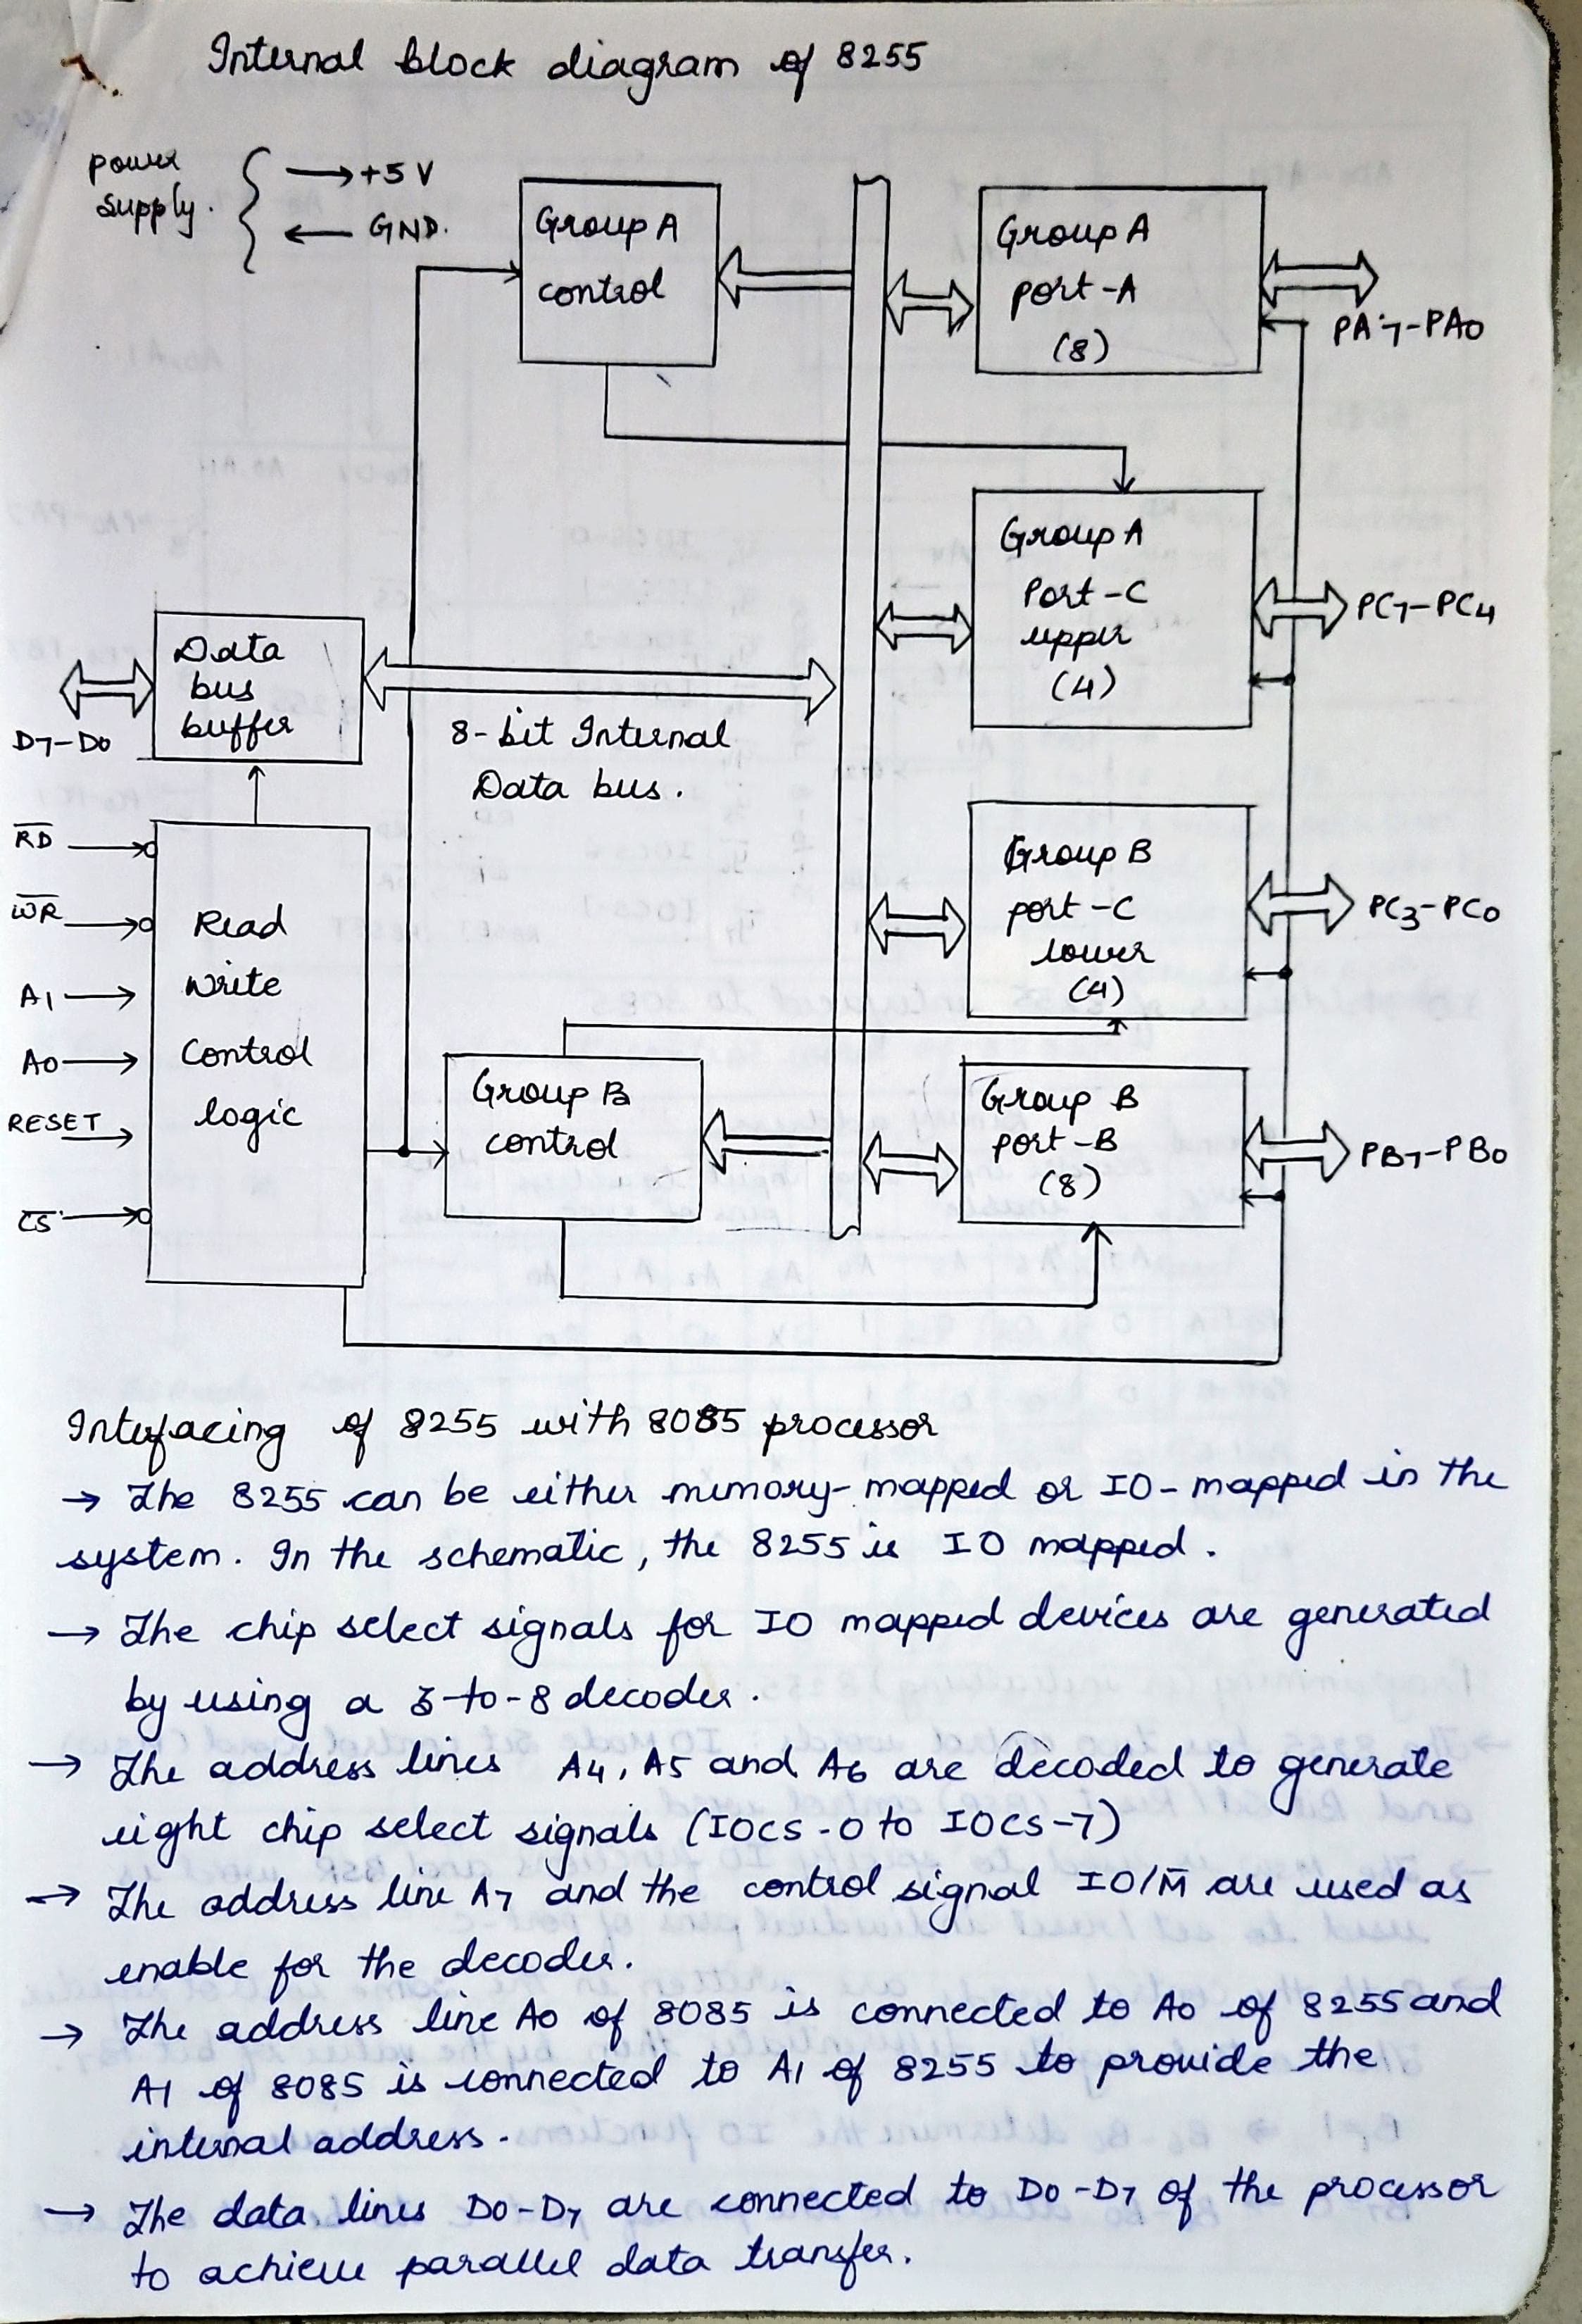 Internal block diagram of 8255
power
supply.
→ +5 V
← GND.
Group A
control
Group A
port-A
(8)
PA7-PA0
Group A
Port-C
upper
(4)
PC7-PC4
Data
bus
buffer
D7-D0
8-bit Internal
Data bus.
R̅D̅
W̅R̅
A1
A0
RESET
C̅S̅
Read
Write
Control
logic
Group B
port-C
lower
(4)
PC3-PC0
Group B
control
Group B
port-B
(8)
PB7-PB0
Intefacing of 8255 with 8085 processor
→ The 8255 can be either memory-mapped or IO-mapped in the
system. In the schematic, the 8255 is IO mapped.
→ The chip select signals for IO mapped devices are generated
by using a 3-to-8 decoder.
→ The address lines A4, A5 and A6 are decoded to generate
eight chip select signals (IOCS-0 to IOCS-7)
→ The address line A7 and the control signal IO/M̅ are used as
enable for the decoder.
→ The address line A0 of 8085 is connected to A0 of 8255 and
A1 of 8085 is connected to A1 of 8255 to provide the
internal address.
→ The data lines D0-D7 are connected to D0-D7 of the processor
to achieve parallel data transfer.